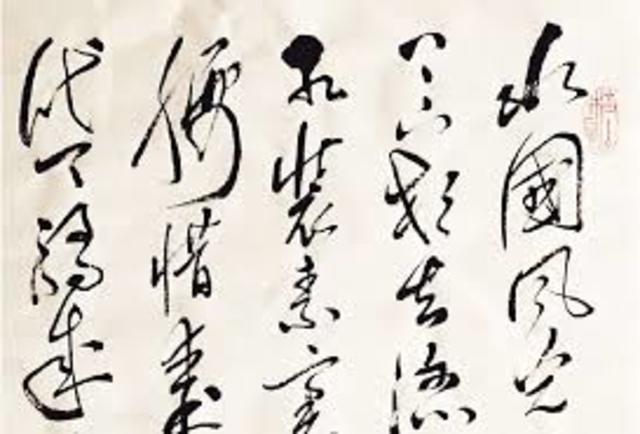 北國風光
上下頓失滔
紅裝素裹
腰惜秦
代天驕成